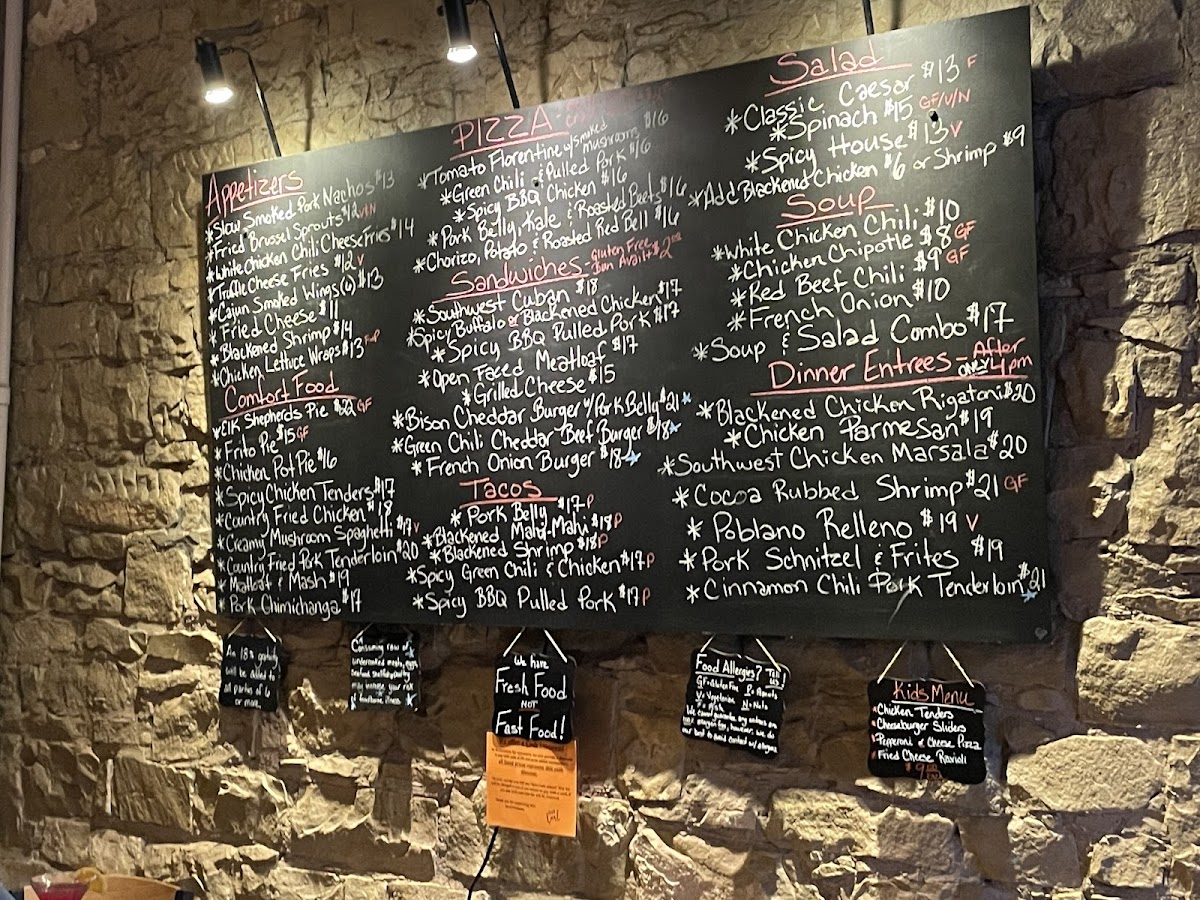 Appetizers
*Slow Smoked Pork Nachos $13
*Fried Brussel Sprouts $12 V/N
*White Chicken Chili Cheese Fries $14
*Truffle Cheese Fries $12 V
*Cajun Smoked Wings (6) $13
*Fried Cheese $11
*Blackened Shrimp $14
*Chicken Lettuce Wraps $13
Comfort Food
*Elk Shepherds Pie $22 GF
*Frito Pie $15 GF
*Chicken Pot Pie $16
*Spicy Chicken Tenders $17
*Country Fried Chicken $18
*Creamy Mushroom Spaghetti $17 V
*Country Fried Pork Tenderloin $20
*Meatloaf & Mash $19
*Pork Chimichanga $17
PIZZA
*Tomato Florentine w/smoked mushrooms $16
*Green Chili & Pulled Pork $16
*Spicy BBQ Chicken $16
*Pork Belly, Kale, & Roasted Beets $16
*Chorizo, Potato & Roasted Red Bell $16
Sandwiches - Gluten Free Bun Avail + $2.00
*Southwest Cuban $18
*Spicy Buffalo or Blackened Chicken $17
*Spicy BBQ Pulled Pork $17
*Open Faced Meatloaf $17
*Grilled Cheese $15
*Bison Cheddar Burger w/ Pork Belly $21*
*Green Chili Cheddar Beef Burger $18*
*French Onion Burger $18*
Tacos
*Pork Belly $17 P
*Blackened Mahi-Mahi $18 P
*Blackened Shrimp $18 P
*Spicy Green Chili & Chicken $17 P
*Spicy BBQ Pulled Pork $17 P
Salad
*Classic Caesar $13 F
*Spinach $15 GF/V/N
*Spicy House $13 V
*Add Blackened Chicken $6 or Shrimp $9
Soup
*White Chicken Chili $10
*Chicken Chipotle $8 GF
*Red Beef Chili $9 GF
*French Onion $10
*Soup & Salad Combo $17
Dinner Entrees - After 4pm ONLY!
*Blackened Chicken Rigatoni $20
*Chicken Parmesan $19
*Southwest Chicken Marsala $20
*Cocoa Rubbed Shrimp $21 GF
*Poblano Relleno $19 V
*Pork Schnitzel & Frites $19
*Cinnamon Chili Pork Tenderloin $21*
An 18% gratuity
will be added to
all parties of 6
or more.
Consuming raw or
undercooked meats, eggs,
may increase your risk
of foodborne illness
We have
Fresh Food
NOT
Fast Food!
Food Allergies? Tell us!
GF=Gluten Free P=Peanuts
V=Vegetarian N=Nuts
F=Fish
Kids Menu
*Chicken Tenders
*Cheeseburger Sliders
*Pepperoni or Cheese Pizza
*Fried Cheese Ravioli
$9